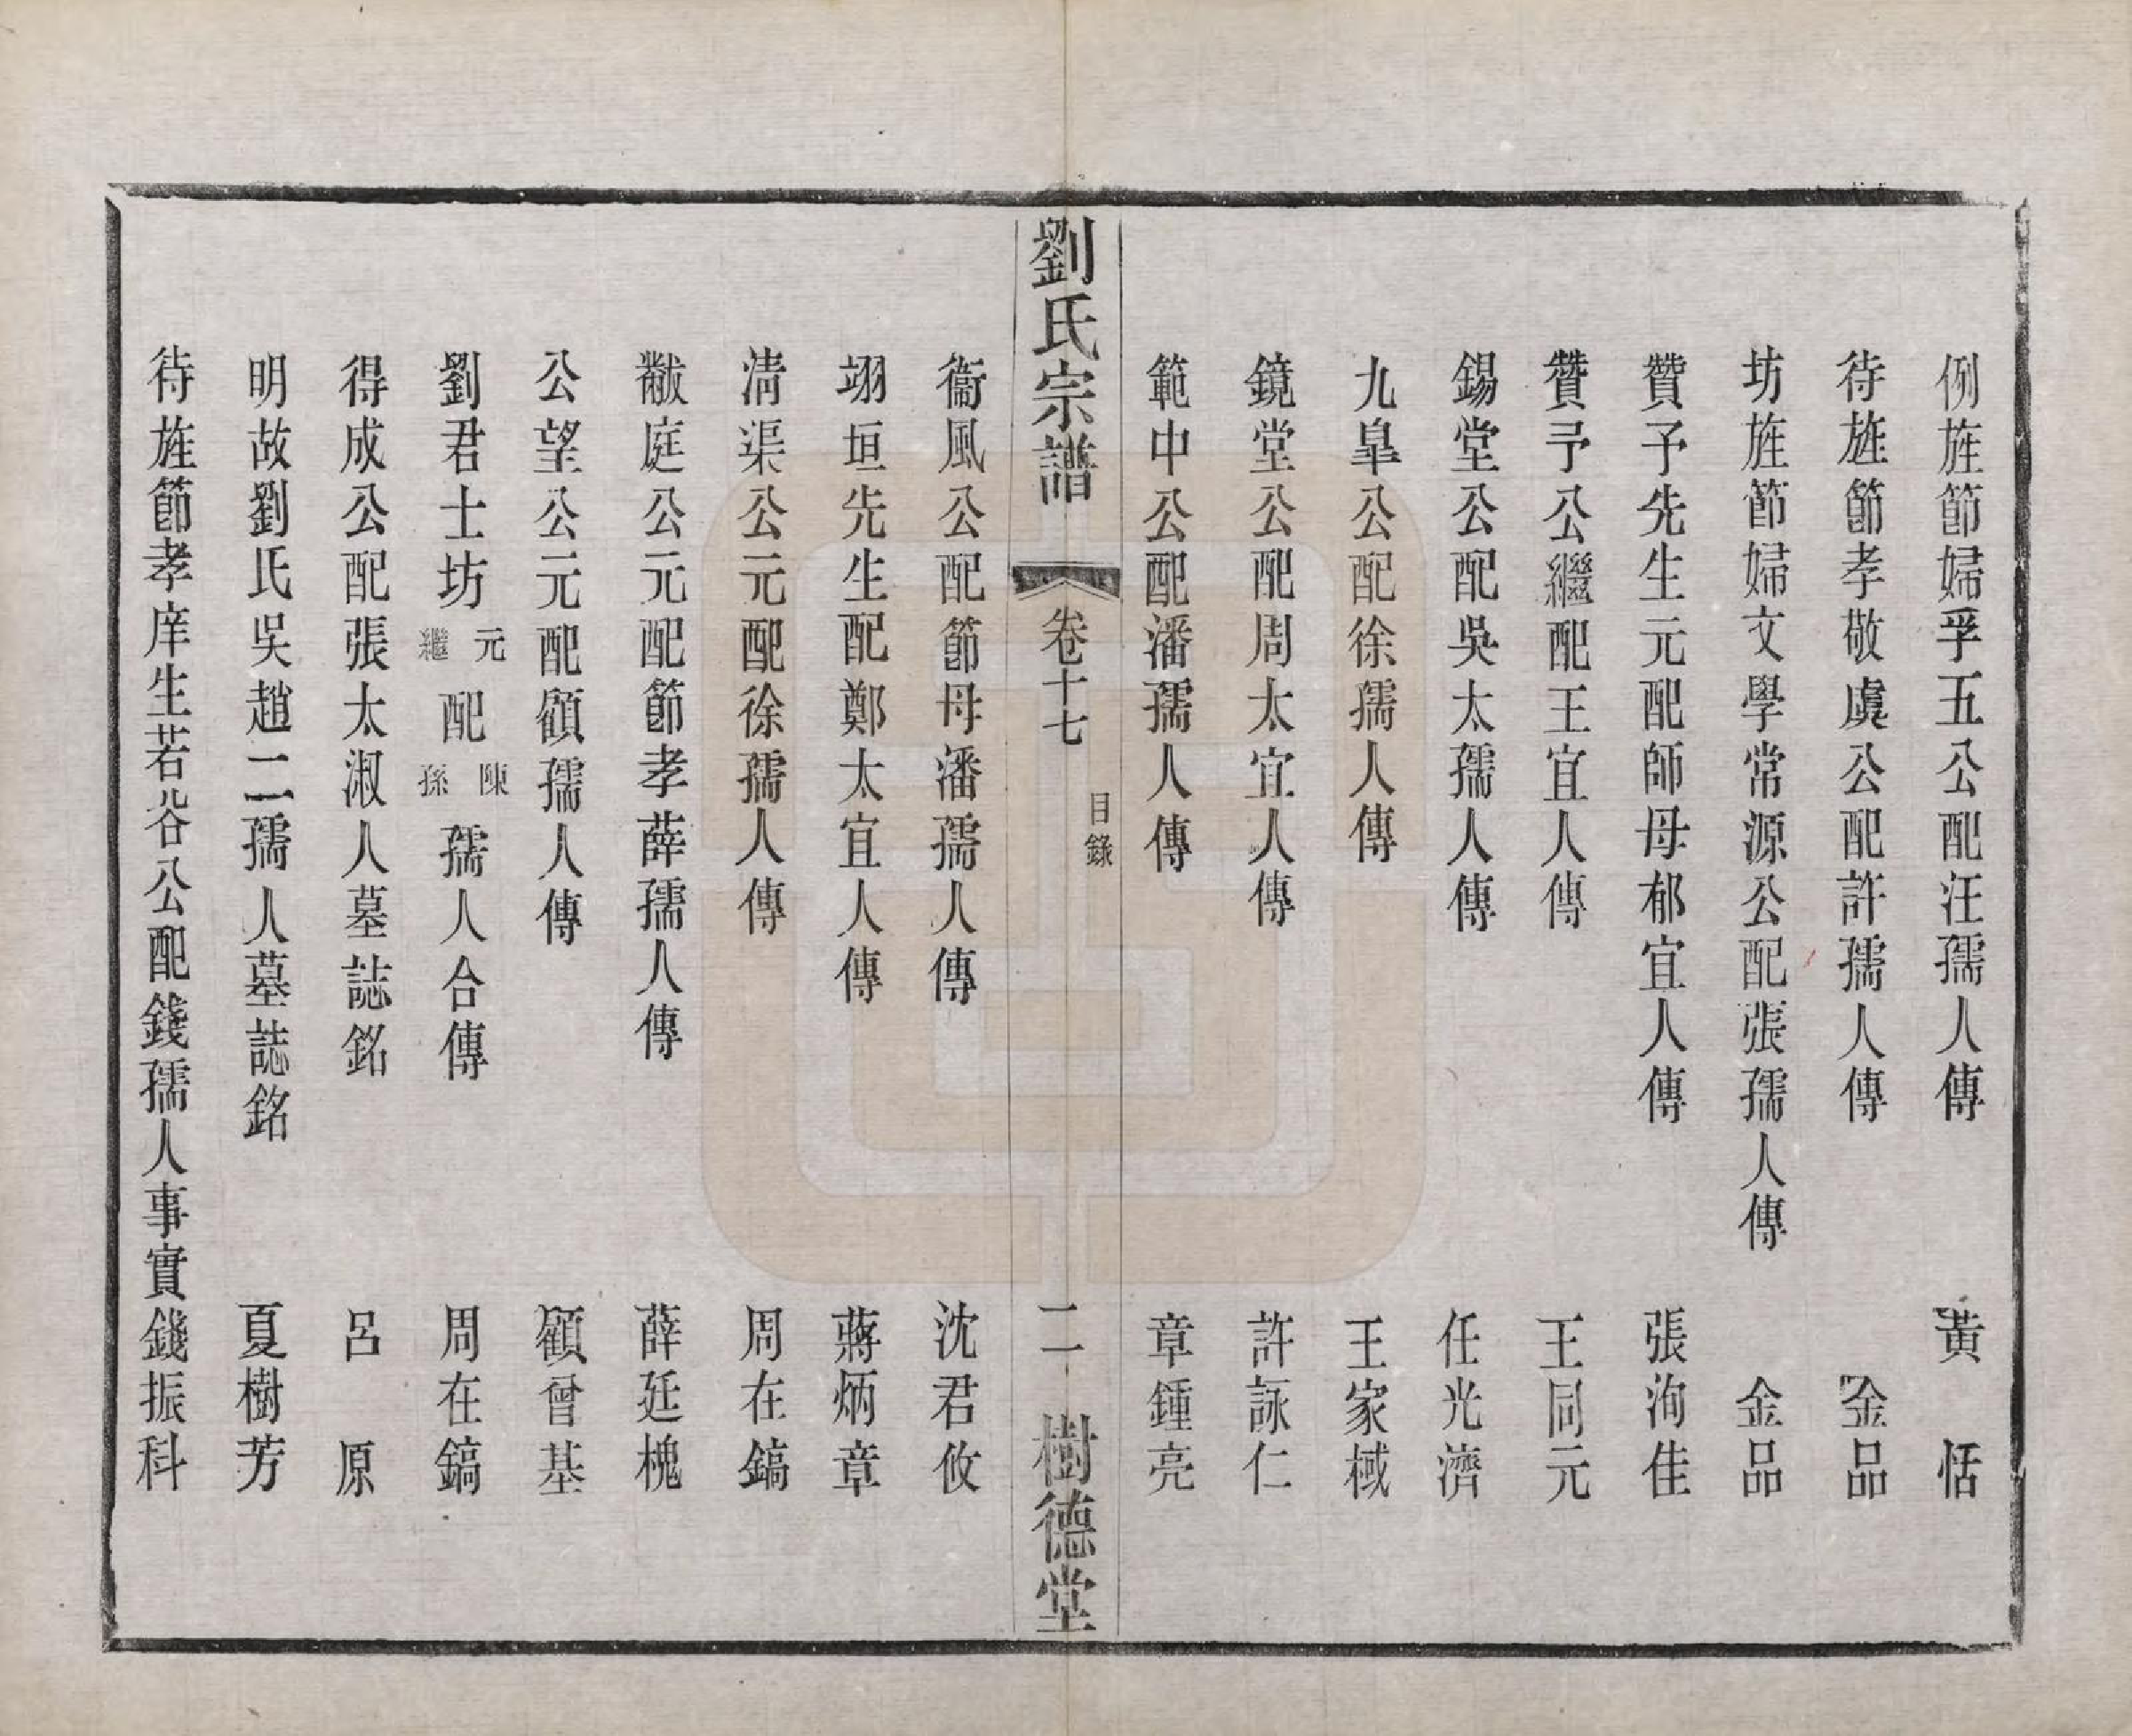 例旌節婦孚五公配汪孺人傳 黃恬
待旌節孝敬虞公配許孺人傳 金品
坊旌節婦文學常源公配張孺人傳 金品
贊予先生元配師母郁宜人傳 張洵佳
贊予公繼配王宜人傳 王同元
錫堂公配吳太孺人傳 任光濟
九皐公配徐孺人傳 王家棫
鏡堂公配周太宜人傳 許詠仁
範中公配潘孺人傳 章鍾亮
劉氏宗譜 卷十七 目錄 二 樹德堂
衞風公配節母潘孺人傳 沈君攸
翊垣先生配鄭太宜人傳 蔣炳章
淸渠公元配徐孺人傳 周在鎬
黻庭公元配節孝薛孺人傳 薛廷槐
公望公元配顧孺人傳 顧曾基
劉君士坊元繼配陳孫孺人合傳 周在鎬
得成公配張太淑人墓誌銘 呂原
明故劉氏吳趙二孺人墓誌銘 夏樹芳
待旌節孝庠生若谷公配錢孺人事實 錢振科